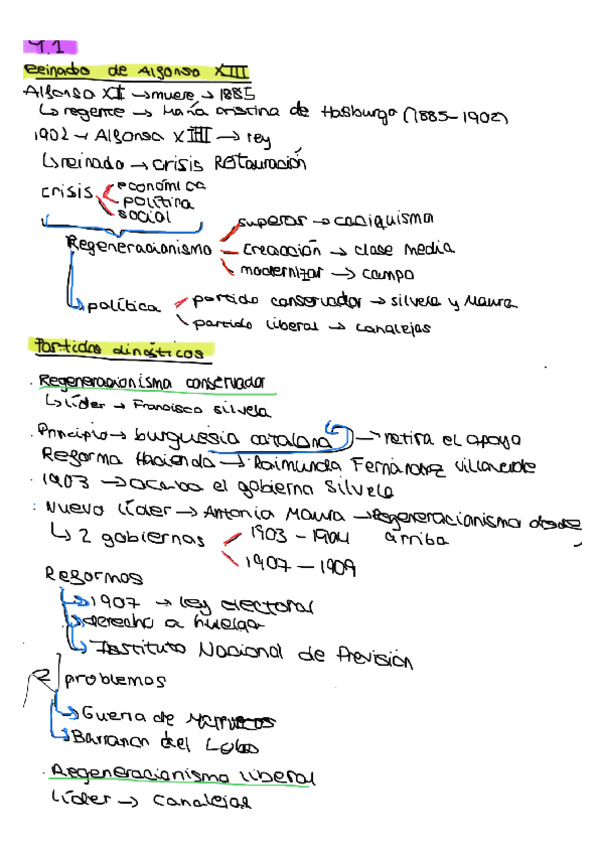 4.1
Reinado de Alfonso XIII
Alfonso XII → muere → 1885
↳ regente → María Cristina de Hasburgo (1885-1902)
1902 → Alfonso XIII → rey
↳ reinado → crisis Restauración
crisis económica
política
social
Regeneracionismo
superar → caciquismo
creacción → clase media
modernizar → campo
política
partido conservador → silvela y Maura
partido liberal → canalejas
Partidos dinásticos
Regeneracionismo conservador
↳ líder → Francisco silvela
Principio → burguesía catalana → retira el apoyo
Reforma Hacienda → Raimundo Fernández Villaverde
1903 → acaba el gobierno Silvela
Nuevo líder → Antonio Maura → Regeneracionismo desde arriba
↳ 2 gobiernos
1903 - 1904
1907 - 1909
Reformas
↳ 1907 → ley electoral
↳ derecho a huelga
↳ Instituto Nacional de Previsión
2 problemas
↳ Guerra de Marruecos
↳ Barranco del Lobo
Regeneracionismo liberal
líder → Canalejas